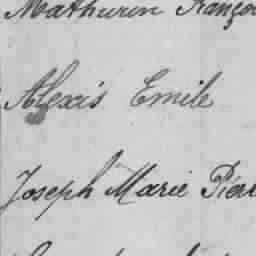 Mathurin Franço
Alexis Emile
Joseph Marie Pier